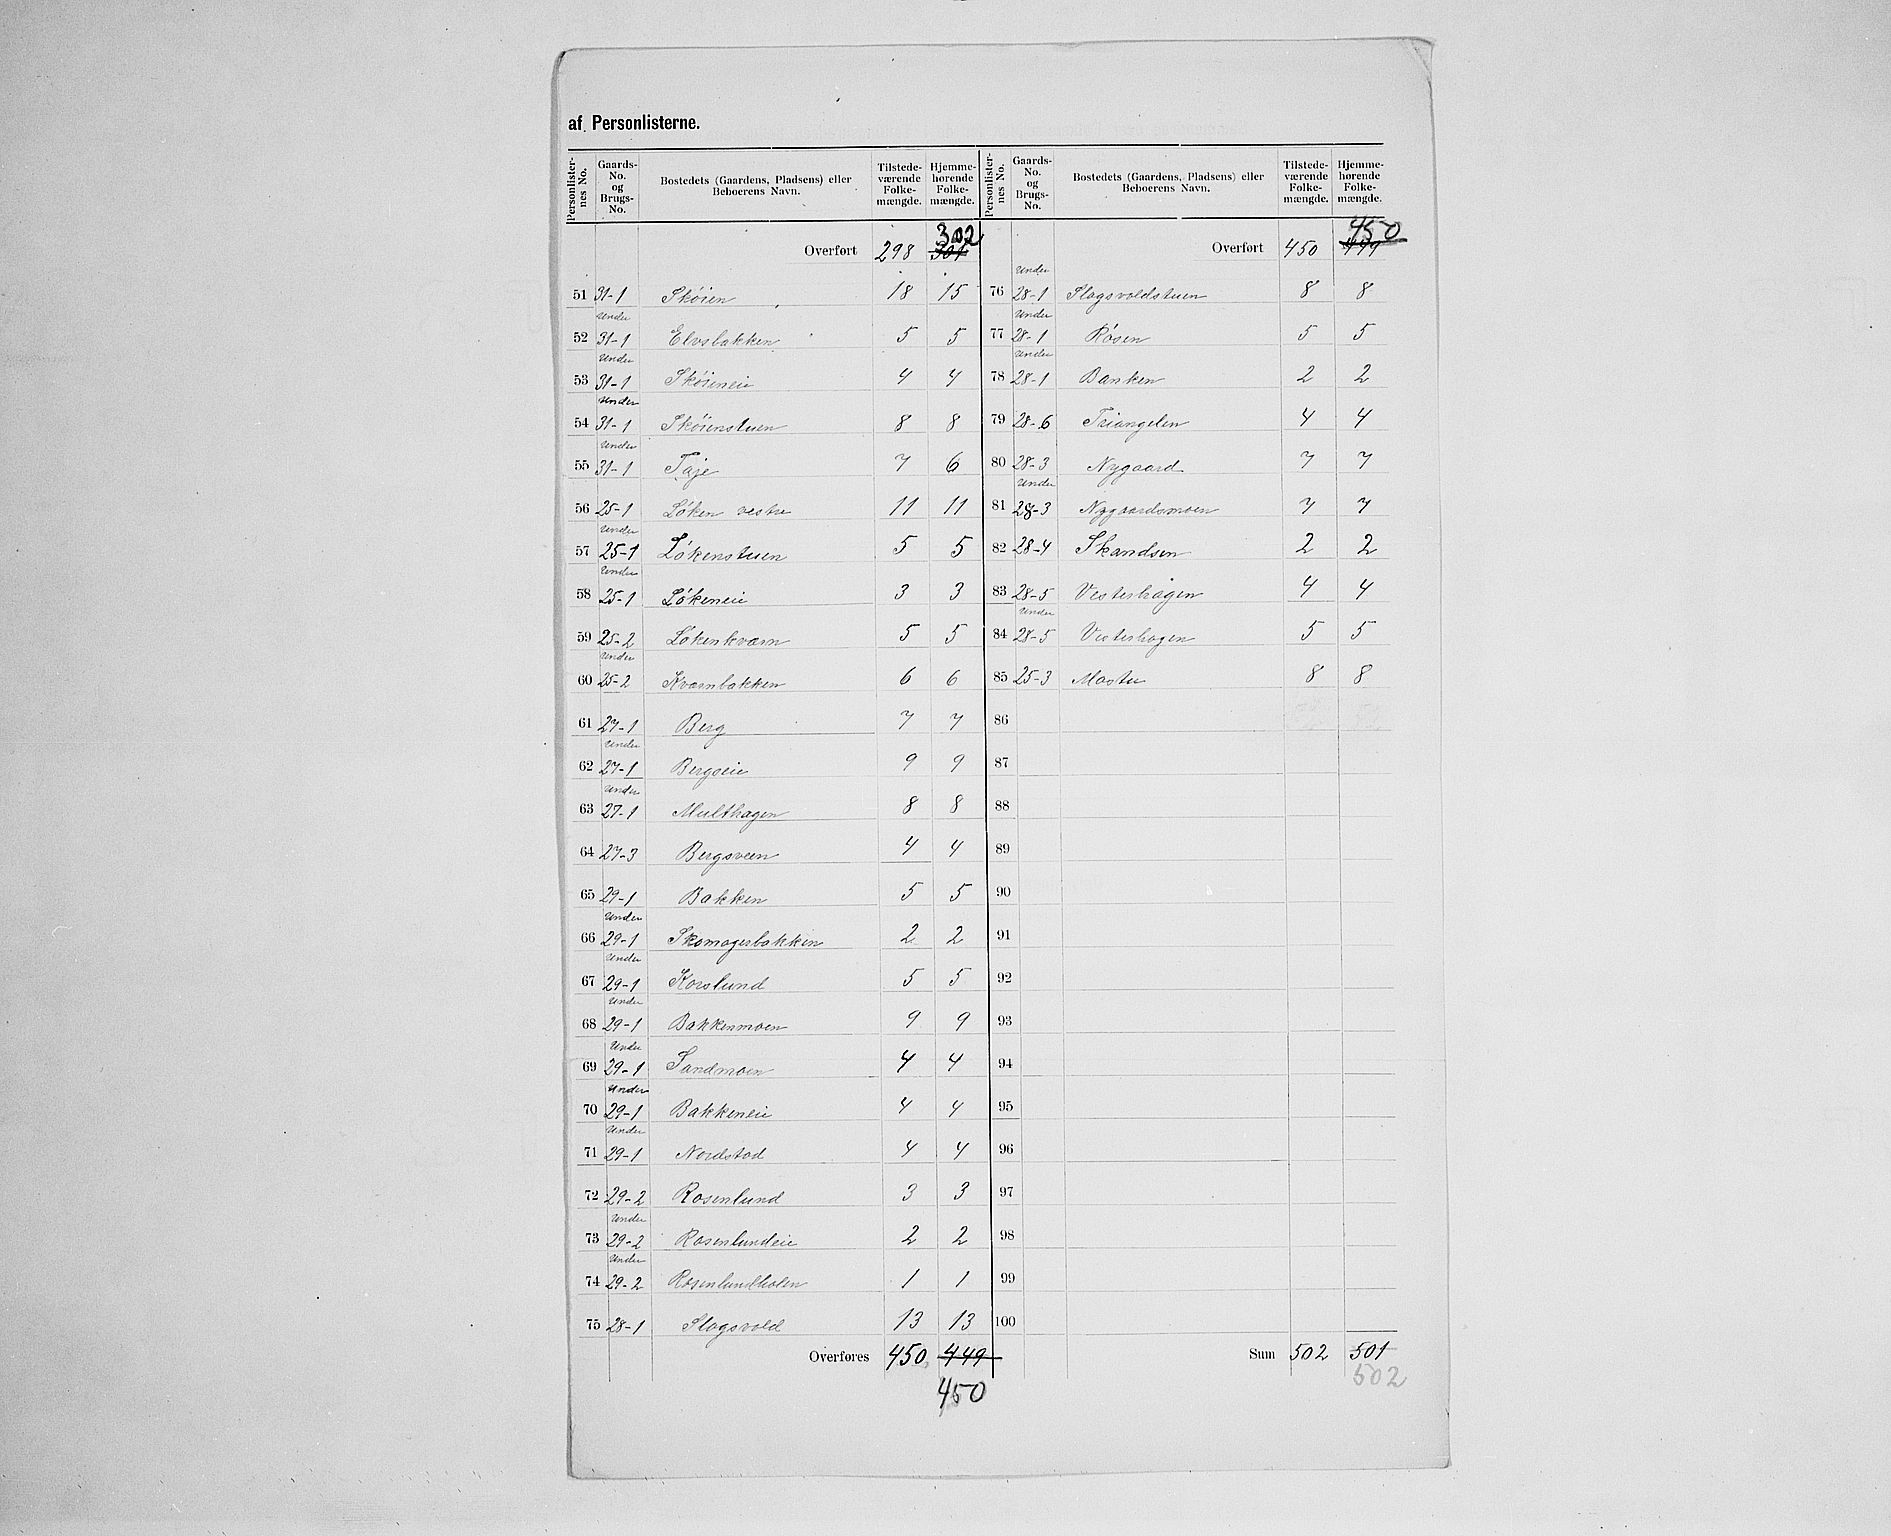 af Personlisterne.
Personlister-nes No. Gaards-No. og Brugs-No. Bostedets (Gaardens, Pladsens) eller Beboerens Navn. Tilstede-værende Folke-mængde. Hjemme-hørende Folke-mængde.
Overført 298 301 302
51 31-1 Sköien 18 15
52 Under 31-1 Elvsbakken 5 5
53 Under 31-1 Sköieneie 4 4
54 Under 31-1 Sköienstuen 8 8
55 Under 31-1 Taje 7 6
56 25-1 Löken vestre 11 11
57 Under 25-1 Lökenstuen 5 5
58 Under 25-1 Lökeneie 3 3
59 25-2 Lökenkværn 5 5
60 Under 25-2 Kværnbakken 6 6
61 27-1 Berg 7 7
62 Under 27-1 Bergseie 9 9
63 Under 27-1 Multhagen 8 8
64 27-3 Bergsveen 4 4
65 29-1 Bakken 5 5
66 Under 29-1 Skomagerbakken 2 2
67 Under 29-1 Korslund 5 5
68 Under 29-1 Bakkenmoen 9 9
69 Under 29-1 Sandmoen 4 4
70 Under 29-1 Bakkeneie 4 4
71 Under 29-1 Nordstad 4 4
72 29-2 Rosenlund 3 3
73 Under 29-2 Rosenlundeie 2 2
74 Under 29-2 Rosenlundholen 1 1
75 28-1 Slagsvold 13 13
Overføres 450 449
450
Personlister-nes No. Gaards-No. og Brugs-No. Bostedets (Gaardens, Pladsens) eller Beboerens Navn. Tilstede-værende Folke-mængde. Hjemme-hørende Folke-mængde.
Overført 450 449 450
76 Under 28-1 Slagsvoldstuen 8 8
77 Under 28-1 Rösen 5 5
78 Under 28-1 Banken 2 2
79 28-6 Triangelen 4 4
80 28-3 Nygaard 7 7
81 Under 28-3 Nygaardsmoen 7 7
82 28-4 Skandsen 2 2
83 28-5 Vesterhagen 4 4
84 Under 28-5 Vesterhagen 5 5
85 25-3 Mastu 8 8
86
87
88
89
90
91
92
93
94
95
96
97
98
99
100
Sum 502 501
502